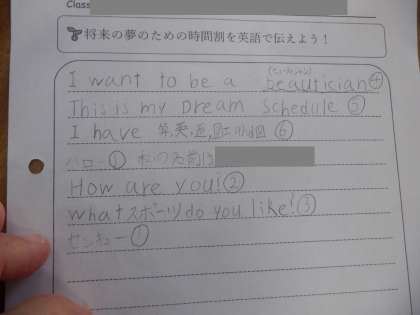 Class
将来の夢のための時間割を英語で伝えよう!
I want to be a beautician④
This is my Dream Schedule ⑤
I have 算,英, ⑥
ハロー① 私の名前は
How are you!②
whatスポーツdo you like!③
センキュー⑦